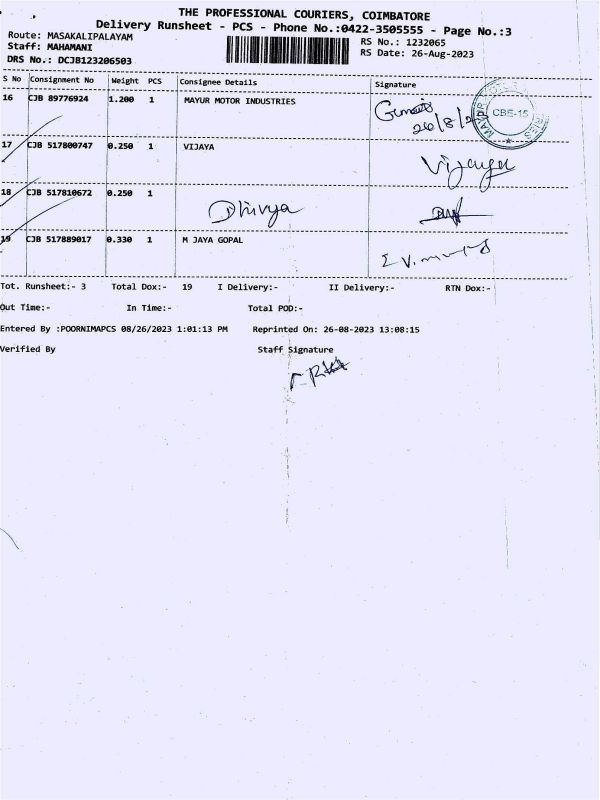 THE PROFESSIONAL COURIERS, COIMBATORE
Delivery Runsheet - PCS - Phone No.:0422-3505555 - Page No.:3
Route: MASAKALIPALAYAM
RS No.: 1232065
Staff: MAHAMANI
RS Date: 26-Aug-2023
DRS No.: DCJB123206503
S No Consignment No Weight PCS Consignee Details Signature
16 CJB 89776924 1.200 1 MAYUR MOTOR INDUSTRIES
26/8/2
CBE-15
17 CJB 517800747 0.250 1 VIJAYA
Vijaya
18 CJB 517810672 0.250 1
Dhivya
19 CJB 517889017 0.330 1 M JAYA GOPAL
Tot. Runsheet:- 3 Total Dox:- 19 I Delivery:- II Delivery:- RTN Dox:-
Out Time:- In Time:- Total POD:-
Entered By :POORNIMAPCS 08/26/2023 1:01:13 PM Reprinted On: 26-08-2023 13:08:15
Verified By Staff Signature